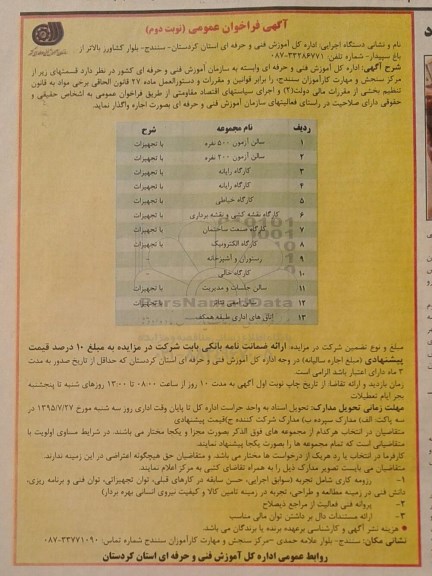 آگهی فراخوان عمومی (نوبت دوم)
نام و نشانی دستگاه اجرایی: اداره کل آموزش فنی و حرفه ای استان کردستان - سنندج- بلوار کشاورز بالاتر از
باغ سپیدار- شماره تلفن: ۳۳۲۸۶۷۷۱-۰۸۷
شرح آگهی: اداره کل آموزش فنی و حرفه ای وابسته به سازمان آموزش فنی و حرفه ای کشور در نظر دارد قسمتهای زیر از
مرکز سنجش و مهارت کارآموزان سنندج، را برابر قوانین و مقررات و دستورالعمل ماده ۲۷ قانون الحاقی برخی مواد به قانون
تنظیم بخشی از مقررات مالی دولت(۲) و اجرای سیاستهای اقتصاد مقاومتی از طریق فراخوان عمومی به اشخاص حقیقی و
حقوقی دارای صلاحیت در راستای فعالیتهای سازمان آموزش فنی و حرفه ای بصورت اجاره واگذار نماید.
ردیف نام مجموعه شرح
۱ سالن آزمون ۵۰۰ نفره با تجهیزات
۲ سالن آزمون ۲۰۰ نفره با تجهیزات
۳ کارگاه رایانه با تجهیزات
۴ کارگاه رایانه با تجهیزات
۵ کارگاه خیاطی با تجهیزات
۶ کارگاه نقشه کشی و نقشه برداری با تجهیزات
۷ کارگاه صنعت ساختمان با تجهیزات
۸ کارگاه الکترونیک با تجهیزات
۹ رستوران و آشپزخانه -
۱۰ کارگاه خالی -
۱۱ سالن جلسات و مدیریت با تجهیزات
۱۲ سالن آمفی تئاتر با تجهیزات
۱۳ اتاق های اداری طبقه همکف
مبلغ و نوع تضمین شرکت در مزایده: ارائه ضمانت نامه بانکی بابت شرکت در مزایده به مبلغ ۱۰ درصد قیمت
پیشنهادی (مبلغ اجاره سالیانه) در وجه اداره کل آموزش فنی و حرفه ای استان کردستان که حداقل از تاریخ صدور به مدت
۳ ماه دارای اعتبار باشد الزامی است.
زمان بازدید و ارائه تقاضا: از تاریخ چاپ نوبت اول آگهی به مدت ۱۰ روز از ساعت ۰۸:۰۰ تا ۱۳:۰۰ روزهای شنبه تا پنجشنبه
بجز ایام تعطیلات
مهلت زمانی تحویل مدارک: تحویل اسناد به واحد حراست اداره کل تا پایان وقت اداری روز سه شنبه مورخ ۱۳۹۵/۷/۲۷ در
سه پاکت: الف) مدارک سپرده ب) مدارک شرکت کننده ج)قیمت پیشنهادی
متقاضیان در انتخاب هر کدام از مجموعه های فوق الذکر بصورت مجزا و یکجا مختار می باشند. در شرایط مساوی اولویت با
متقاضیانی است که تمام مجموعه ها را بصورت یکجا پیشنهاد نمایند.
کارفرما در انتخاب یا رد هریک از درخواست ها مختار می باشد. و متقاضیان حق هیچگونه اعتراضی در این زمینه ندارند.
متقاضیان می بایست تصویر مدارک ذیل را به همراه تقاضای کتبی به مرکز اعلام نمایند.
۱- رزومه کاری شامل تجربه (سوابق اجرایی، حسن سابقه در کارهای قبلی، توان تجهیزاتی، توان فنی و برنامه ریزی،
دانش فنی در زمینه مطالعه و طراحی، تجربه در زمینه تامین کالا و کیفیت نیروی انسانی بهره بردار)
۲- پروانه فنی فعالیت از مراجع ذیصلاح
۳- ارائه مستندات دال بر داشتن توان مالی مناسب
* هزینه نشر آگهی و کارشناسی برعهده برنده یا برندگان می باشد.
نشانی مکان: سنندج- بلوار علامه حمدی -مرکز سنجش و مهارت کارآموزان سنندج شماره تماس: ۳۳۷۷۱۰۹۰-۰۸۷
روابط عمومی اداره کل آموزش فنی و حرفه ای استان کردستان